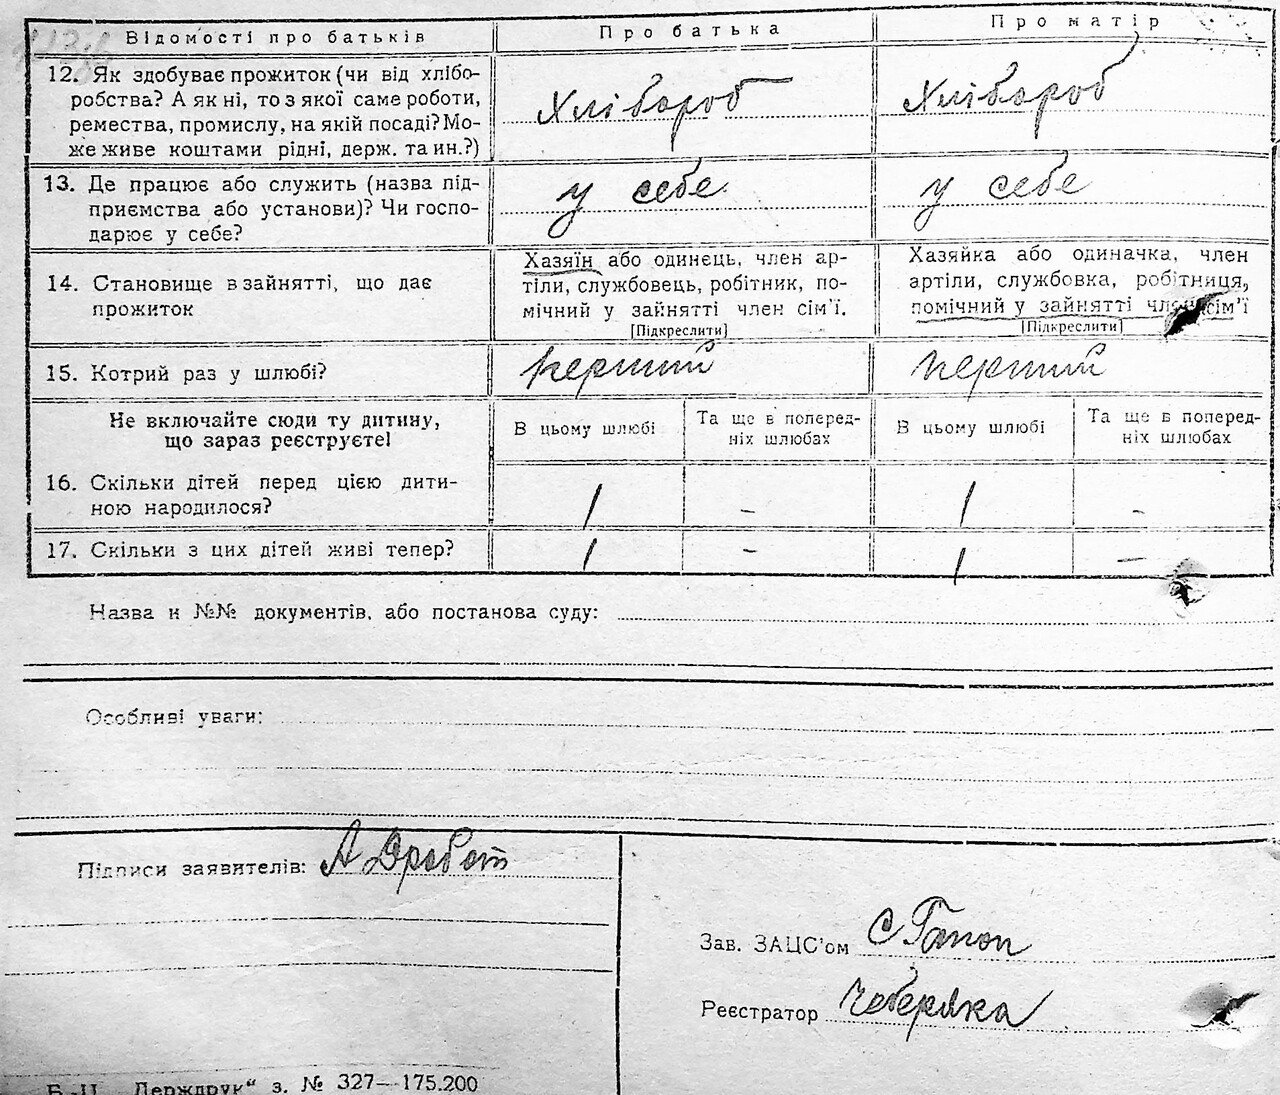 Відомості про батьків
Про батька
Про матір
12. Як здобуває прожиток (чи від хлібо-
робства? А як ні, то з якої саме роботи,
ремества, промислу, на якій посаді? Мо-
же живе коштами рідні, держ. та ин.?)
Хлібороб
Хлібороб
13. Де працює або служить (назва під-
приємства або установи)? Чи госпо-
дарює у себе?
у себе
у себе
14. Становище в зайнятті, що дає
прожиток
Хазяїн або одинець, член ар-
тіли, службовець, робітник, по-
мічний у зайнятті член сім'ї.
[Підкреслити]
Хазяйка або одиначка, член
артіли, службовка, робітниця,
помічний у зайнятті член сім'ї
[Підкреслити]
15. Котрий раз у шлюбі?
перший
перший
Не включайте сюди ту дитину,
що зараз реєструєте!
В цьому шлюбі
Та ще в поперед-
ніх шлюбах
В цьому шлюбі
Та ще в поперед-
ніх шлюбах
16. Скільки дітей перед цією дити-
ною народилося?
1
-
1
-
17. Скільки з цих дітей живі тепер?
1
-
1
-
Назва и №№ документів, або постанова суду:
Особливі уваги:
Підписи заявителів: А Дробот
Зав. ЗАЦС'ом С Гапон
Реєстратор Чеберяка
Б.-Ц. „Держдрук“ з. № 327—175.200